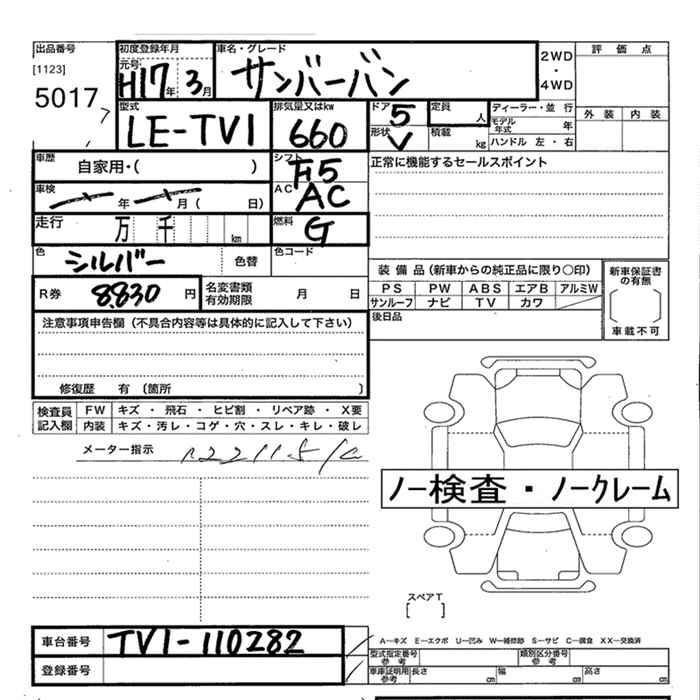 出品番号 初度登録年月 車名・グレード 2WD ・ 4WD 評価点
[1123] 元号 H17年 3月 サンバーバン
5017 外装 内装
型式 LE-TV1 排気量又はkw 660 ドア 5 定員 人 ディーラー・並行
形状 V 積載 kg モデル年式 年
ハンドル 左・右
車歴 自家用・( ) シフト F5 正常に機能するセールスポイント
車検 年 月 ( 日) AC AC
走行 万 千 km 燃料 G
色 シルバー 色替 色コード
装備品(新車からの純正品に限り○印) 新車保証書の有無
R券 8830 円 名変書類有効期限 月 日 PS PW ABS エアB アルミW
サンルーフ ナビ TV カワ
注意事項申告欄(不具合内容等は具体的に記入して下さい) 後日品 車載不可
修復歴 有 (箇所 )
検査員記入欄 FW キズ・飛石・ヒビ割・リペア跡・X要
内装 キズ・汚レ・コゲ・穴・スレ・キレ・破レ
メーター指示
ノー検査・ノークレーム
スペアT
[ ]
車台番号 TV1-110282
A−キズ E−エクボ U−凹み W−補修跡 S−サビ C−腐食 XX−交換済
登録番号 型式指定番号 参考 類別区分番号 参考
車庫証明用 参考 長さ cm 幅 cm 高さ cm